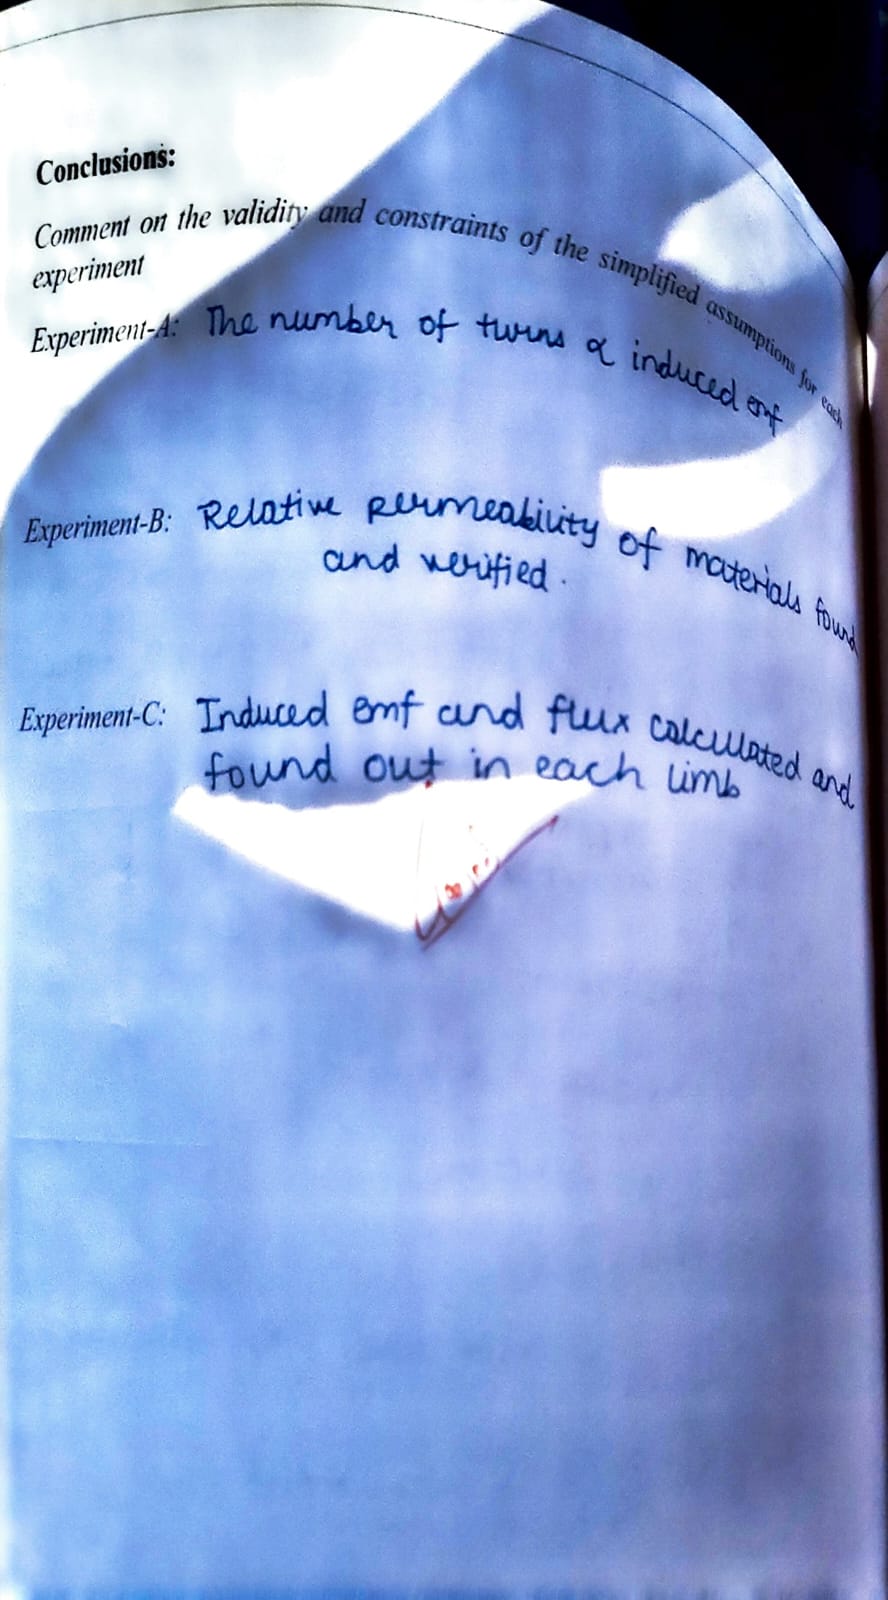 Conclusions:
Comment on the validity and constraints of the simplified assumptions for each
experiment
Experiment-A: The number of turns α induced emf
Experiment-B: Relative permeability of materials found
and verified.
Experiment-C: Induced emf and flux calculated and
found out in each limb